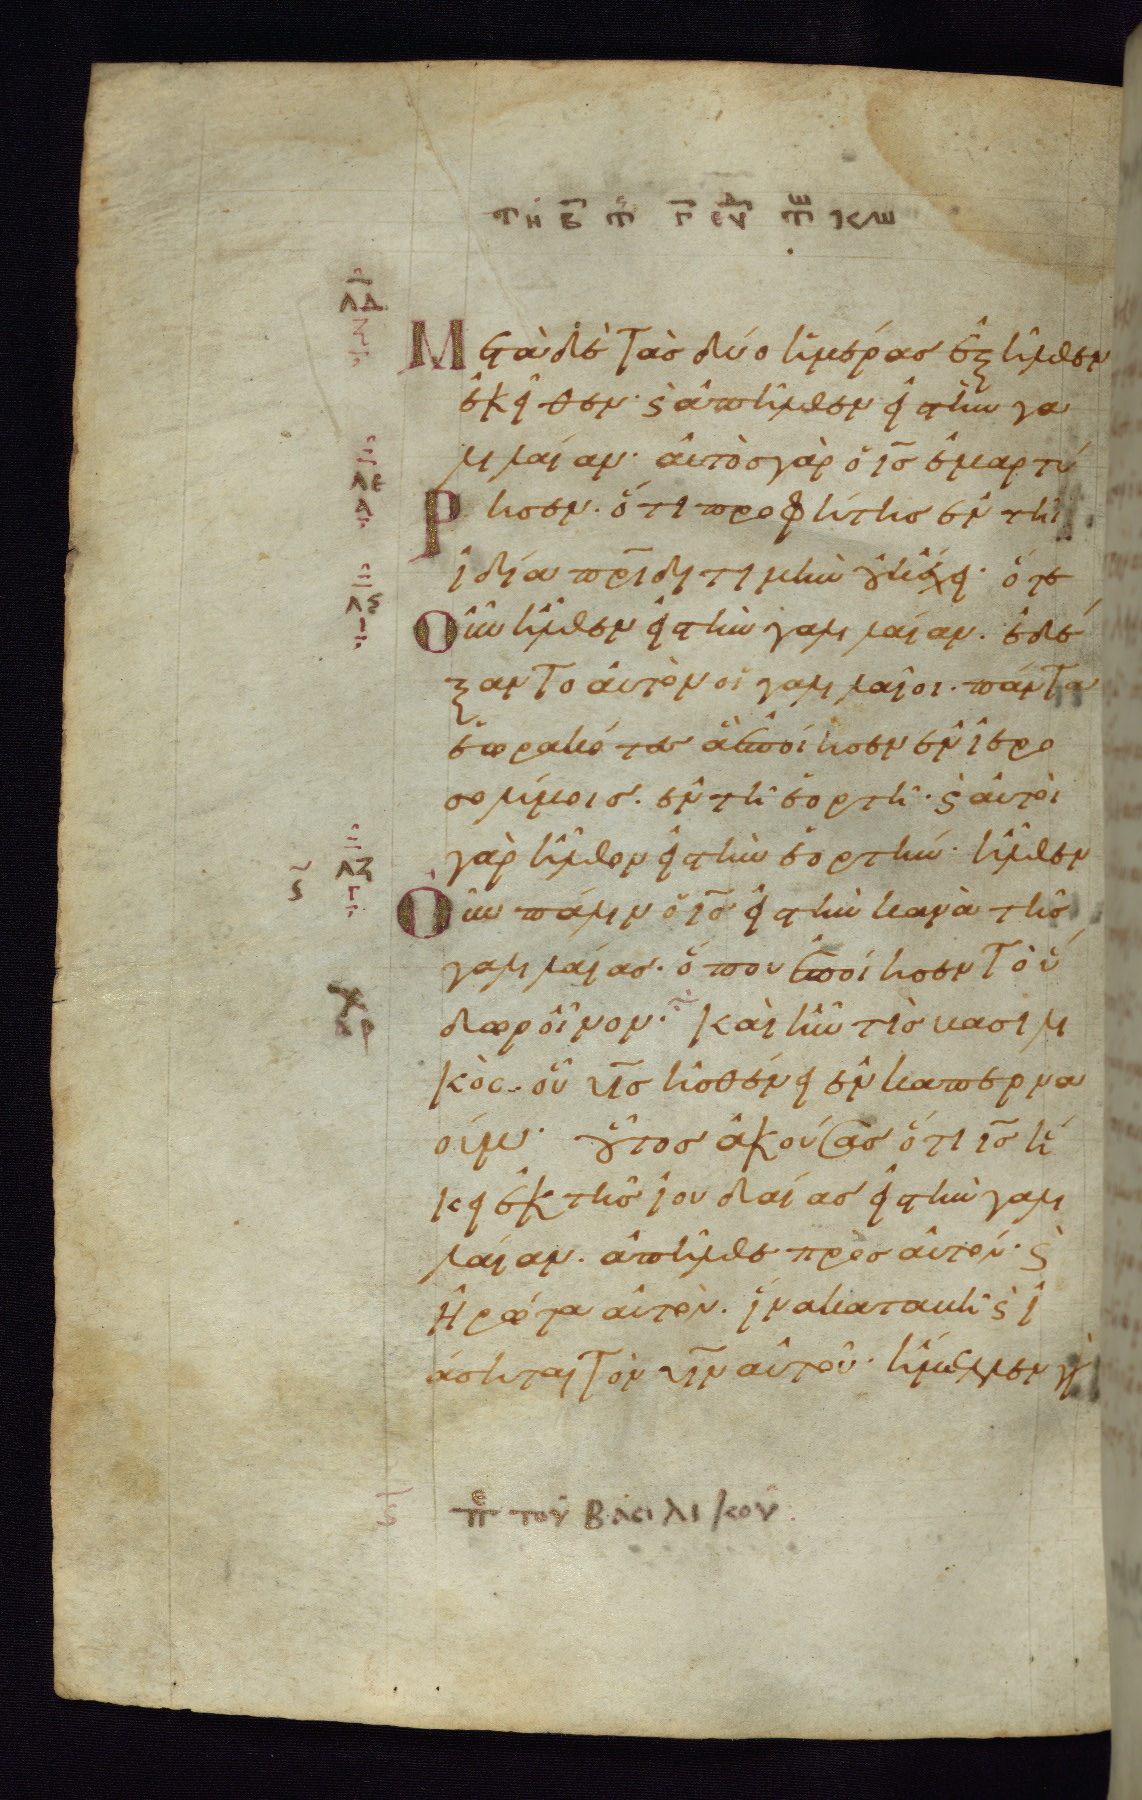 Μετὰ δὲ τὰς δύο ἡμέρας ἐξῆλθεν
ἐκεῖθεν· ϛ ἀπῆλθεν εἰς τὴν γα
λιλαίαν· αὐτὸς γὰρ ὁ ι̅ς̅ ἐμαρτύ
Ρησεν· ὅτι προφήτης ἐν τῆ
ἰδία π̅ρ̅ι̅δι τιμὴν οὐκ ἔχει· ὅτε
Οὖν ἦλθεν εἰς τὴν γαλιλαίαν· ἐδέ
ξαντο αὐτὸν οἱ γαλιλαῖοι· πάντα
ἑωρακότες ἃ ἐποίησεν ἐν ἱερο
σολύμοις· ἐν τῆ ἑορτῆ· ϛ αὐτοὶ
γὰρ ἦλθον εἰς τὴν ἑορτήν· ἦλθεν
Οὖν πάλιν ὁ ι̅ς̅ εἰς τὴν κανὰ τῆς
γαλιλαίας· ὅπου ἐποίησεν τὸ ὕ
δωρ οἶνον· καὶ ἦν τις βασιλι
κὸς· οὗ υ̅ς̅ ἠσθένει ἐν καπερνα
ούμ· οὗτος ἀκούσας ὅτι ι̅ς̅ ἥ
κει ἐκ τῆς ἰουδαίας εἰς τὴν γαλι
λαίαν· ἀπῆλθε πρὸς αὐτόν· ϛ
ἠρώτα αὐτὸν· ἵνα καταβῆ ϛ ἰ
άσηται τὸν υ̅ν̅ αὐτοῦ· ἤμελλεν γὰρ
ϛ̅ πε τοῦ Βασιλικοῦ